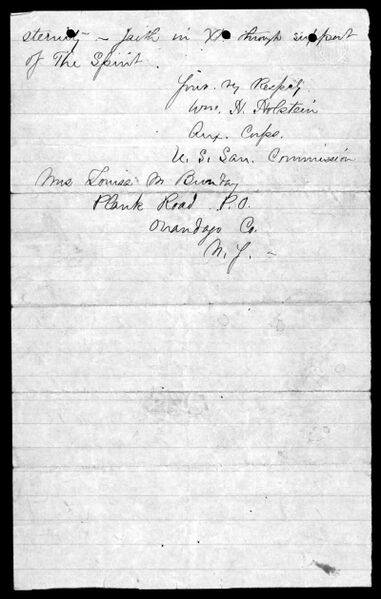 eternity – faith in Xt through support
of The Spirit.
Yours Vy Respfly
Wm. H. Holstein
Aux. Corps.
U. S. San. Commission
Mrs Louisa M
Plank Road P.O.
Onandago Co.
N. Y. –